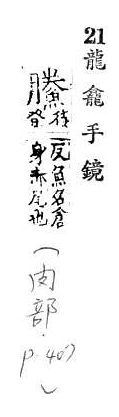 21 龍龕手鏡
䲢徒登反魚名倉
身赤尾也
(肉部.p.407)